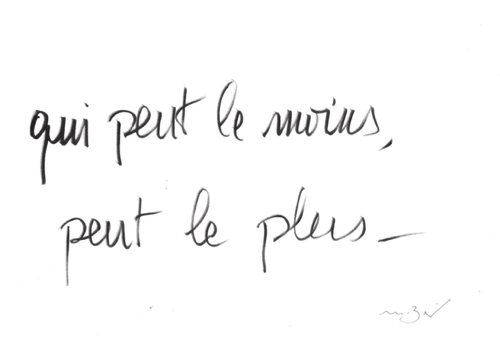 qui peut le moins,
peut le plus_